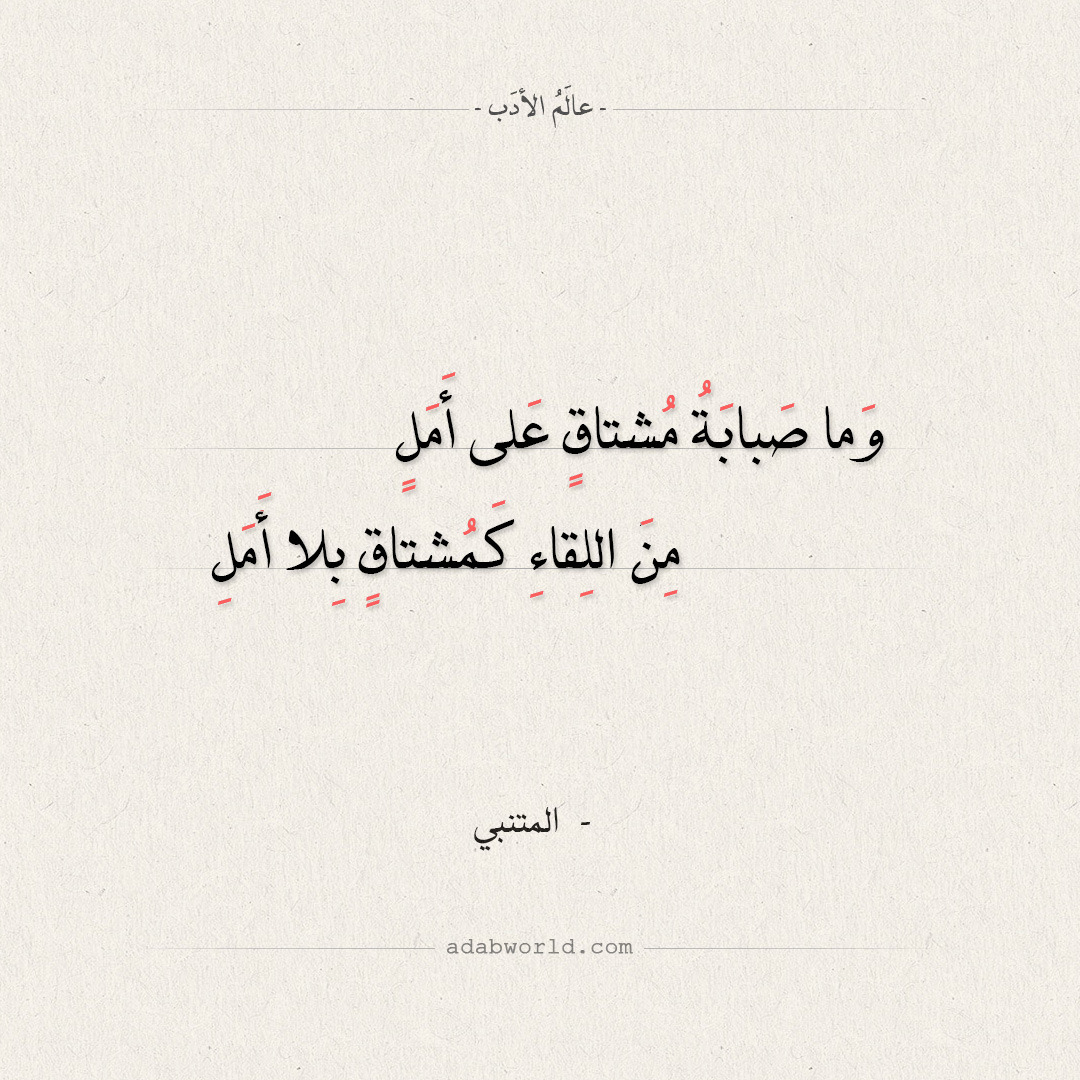 - عالَمُ الأدَب -
وَما صَبابَةُ مُشتاقٍ عَلى أَمَلٍ
مِنَ اللِقاءِ كَمُشتاقٍ بِلا أَمَلِ
- المتنبي
adabworld.com